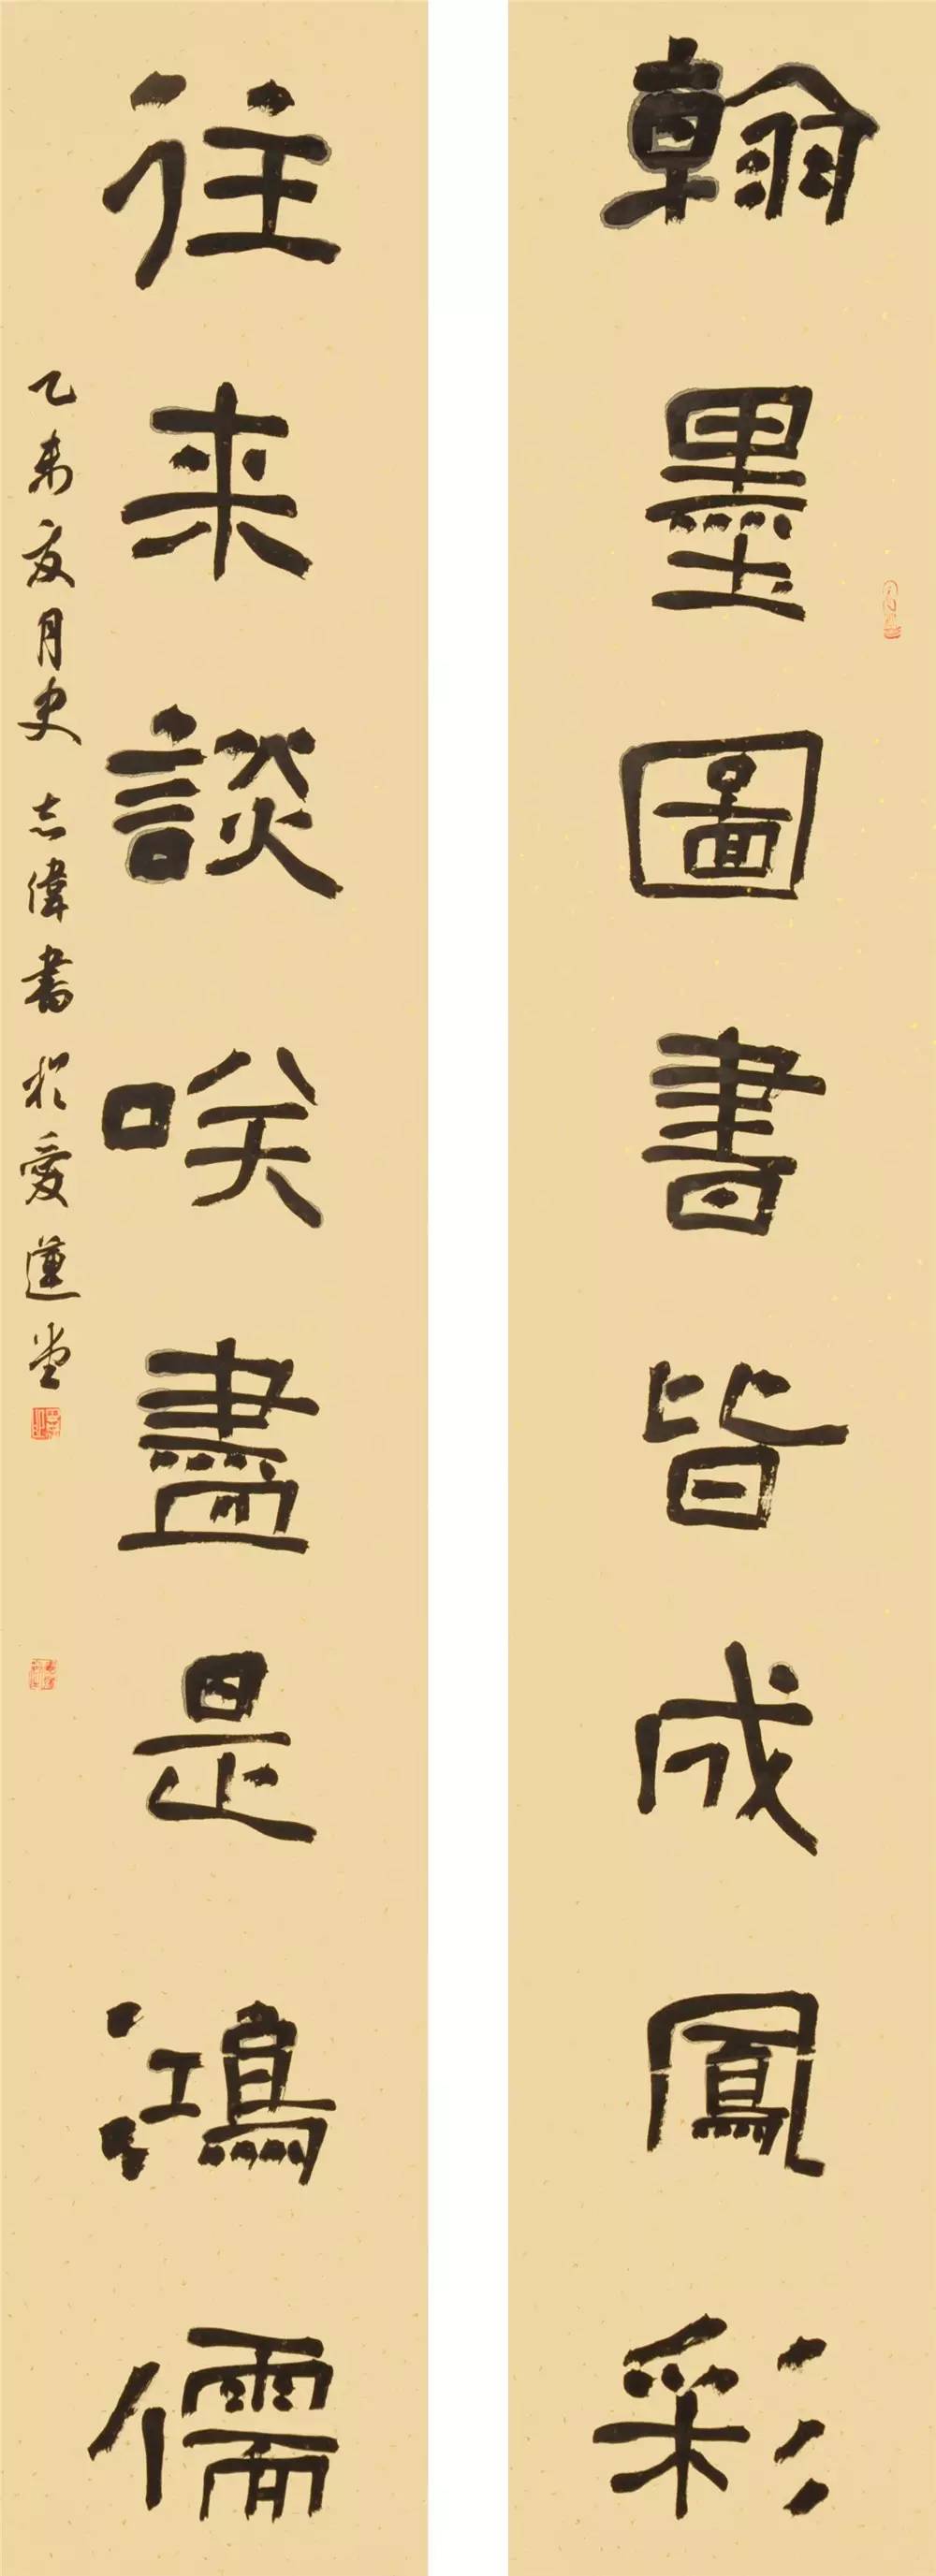 翰墨圖書皆成鳳彩
往来談咲盡是鴻儒
乙未夏月史志偉書於愛蓮堂